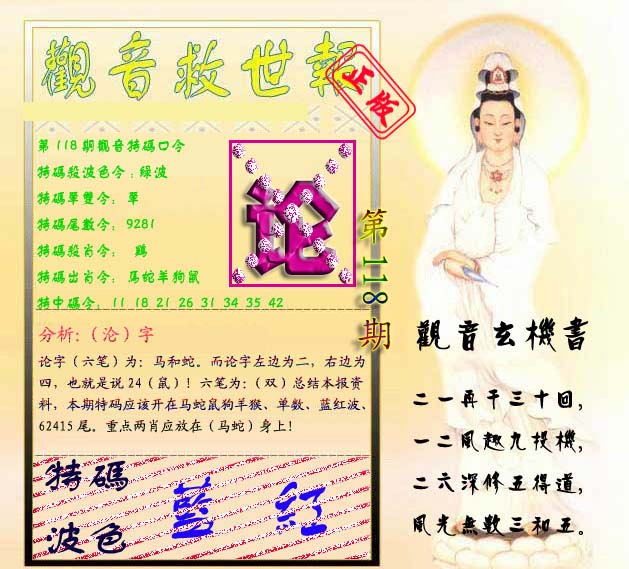 觀音救世報
正版
第118期觀音特碼口令
特碼殺波色令：綠波
特碼單雙令： 單
特碼尾數令： 9281
特碼殺肖令： 鷄
特碼出肖令： 馬蛇羊狗鼠
特中碼令： 11 18 21 26 31 34 35 42
论
第118期
分析：（沦）字
论字（六笔）为：马和蛇。而论字左边为二，右边为
四，也就是说24（鼠）！六笔为：（双）总结本报资
料，本期特码应该开在马蛇鼠狗羊猴、单数、蓝红波、
62415尾。重点两肖应放在（马蛇）身上！
特碼
波色
藍 紅
觀音玄機書
二一再干三十回，
一二風趣九授機，
二六深修五得道，
風光無數三和五。